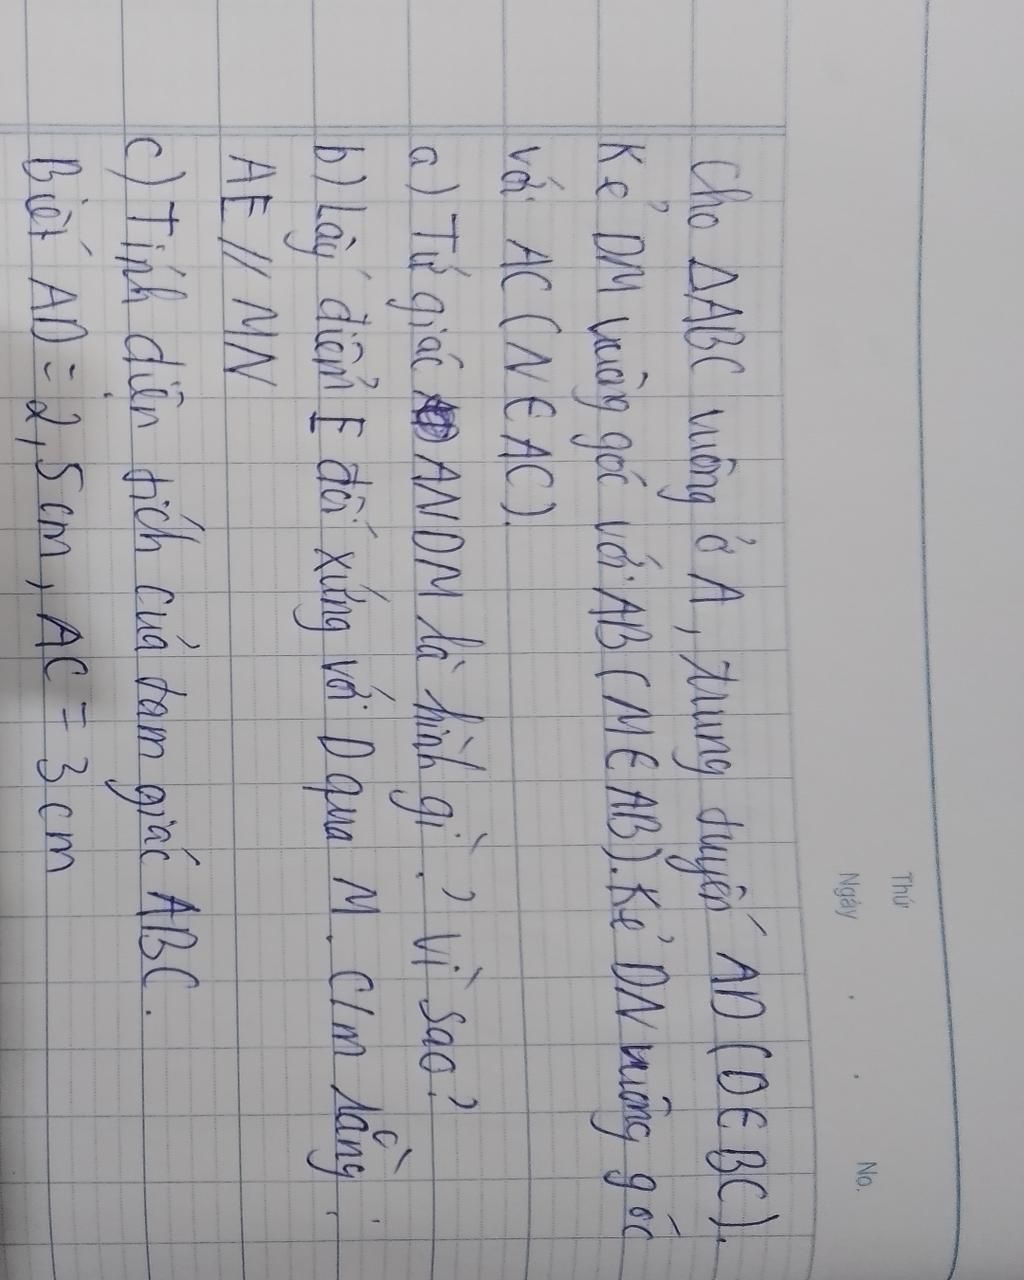 Thứ
Ngày
No.
Cho ΔABC vuông ở A, trung tuyến AD (D∈BC).
Kẻ DM vuông góc với AB (M∈AB). Kẻ DN vuông góc
với AC (N∈AC).
a) Tứ giác ANDM là hình gì? Vì sao?
b) Lấy điểm E đối xứng với D qua M. C/m rằng
AE // MN
c) Tính diện tích của tam giác ABC.
Biết AD = 2,5cm, AC = 3cm